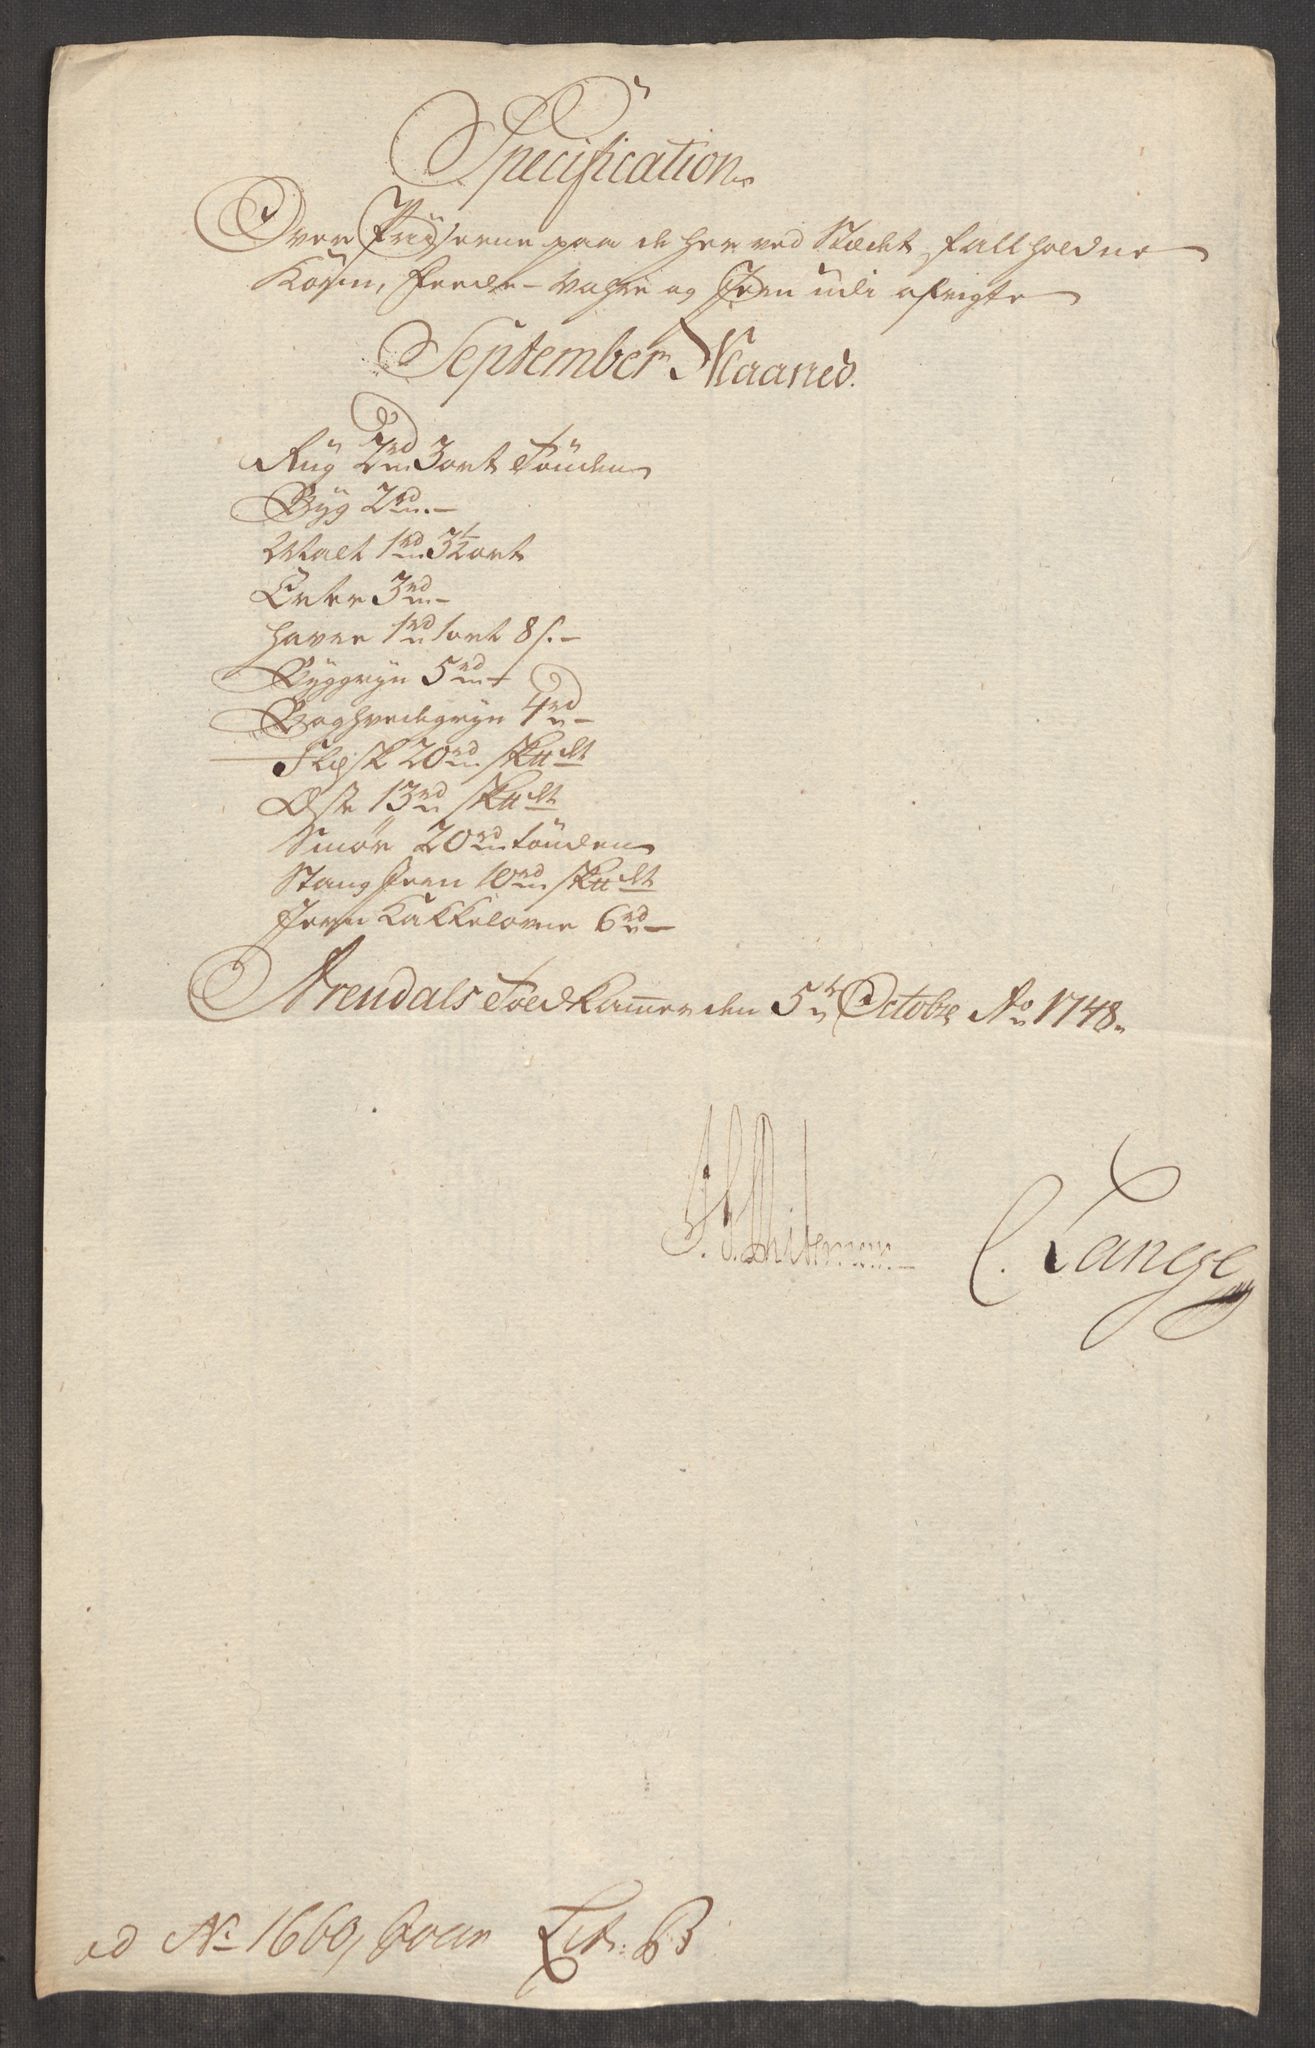 Specification
Over Prüserne paa de her ved Stædet fallholdne
Korn, Feede-Vahre og Jern udi afvigte
September Maaned.
Rüg 2rd 3ort Tönden
Byg 2rd.-
Malt 1rd 3½ort
Erter 3rd-
Havre 1rd 1ort 8s.-
Byggryn 5rd-
Boghvedegryn 4rd-
Flesk 20rd Sk℔dt
Oste 13rd Sk℔dt
Smör 20rd tönden
Stang Jern 10rd Sk℔dt
Jern Kakkelovne 6rd-
Arendals Toldkamer den 5t Octobr Ao 1748.
C. Lange
ad No 1660, Lit: B